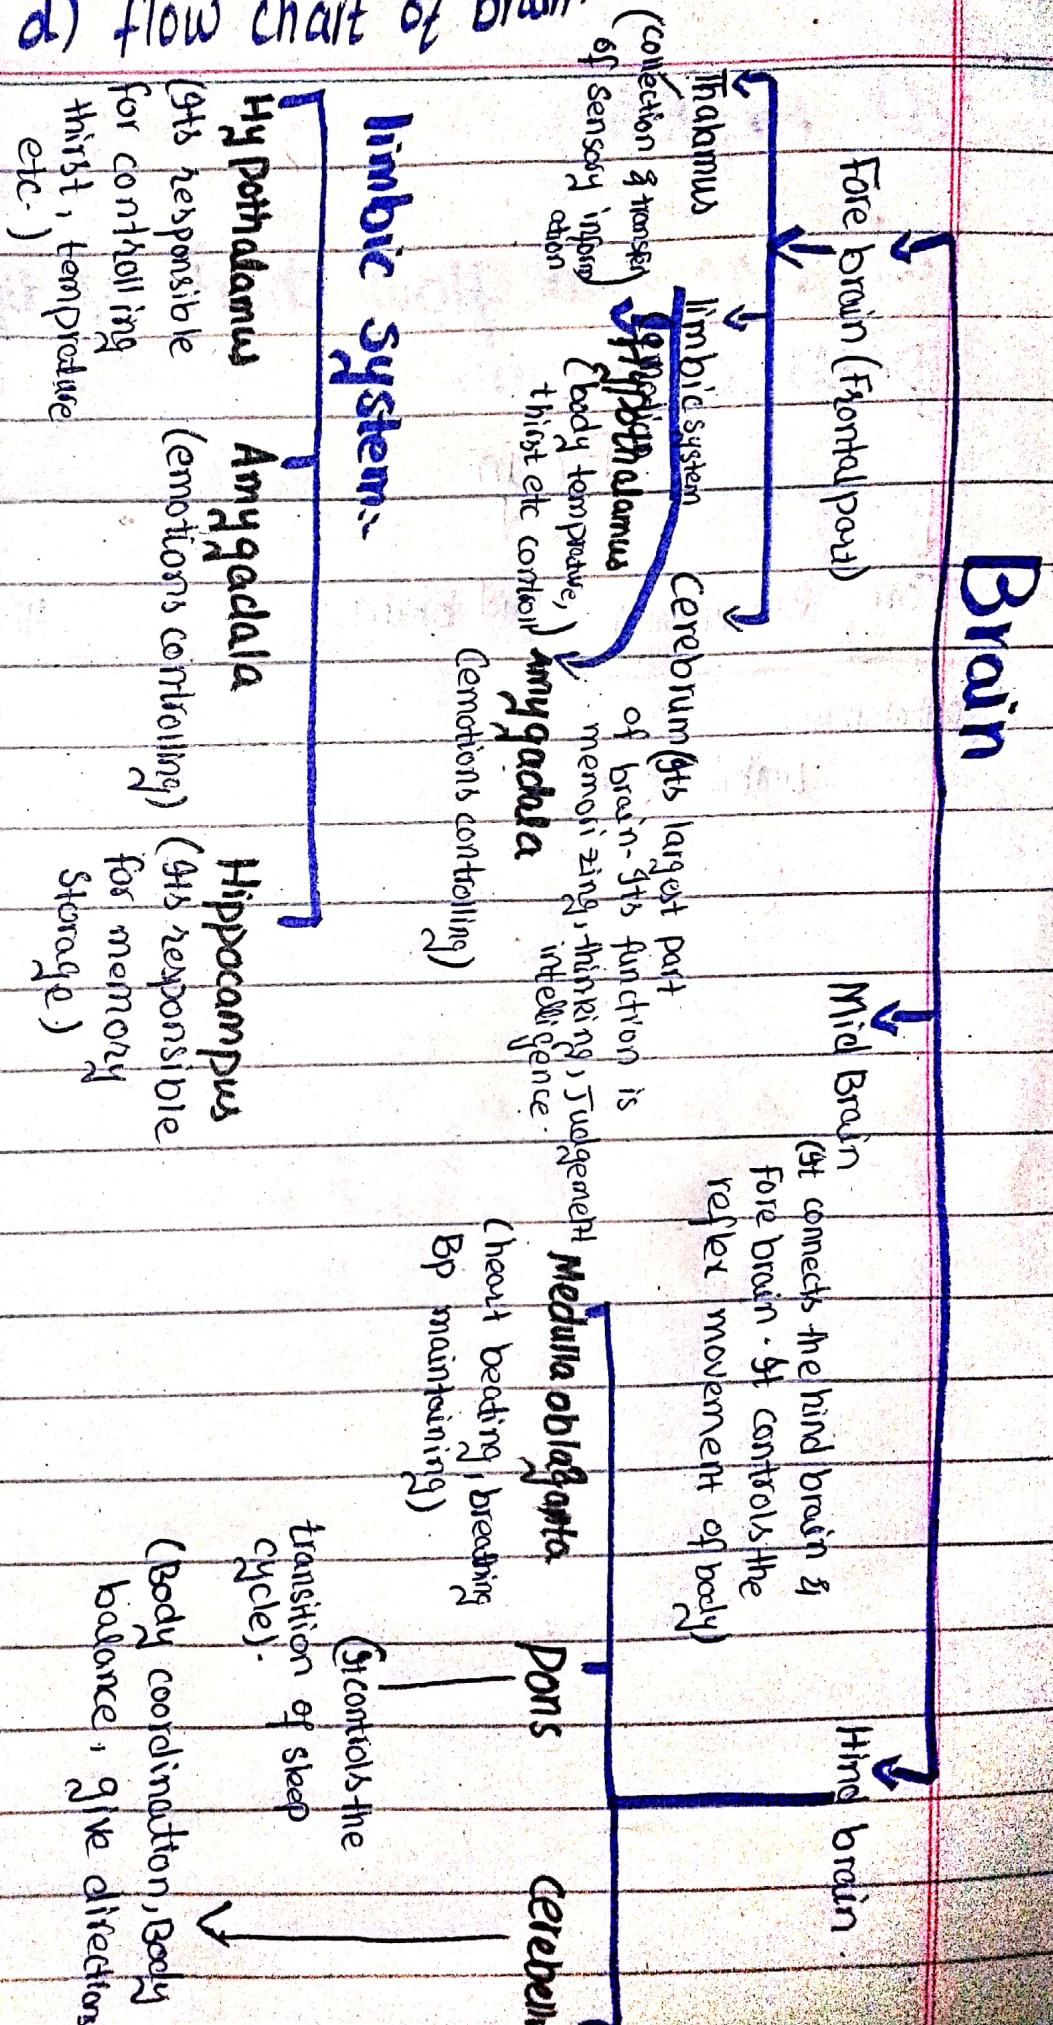 d) flow chart of brain
Brain
Fore brain (Frontal part)
Mid Brain
(It connects the hind brain &
Fore brain. It controls the
reflex movement of body)
Hind brain
Thalamus
(collection & transfer
of sensory inform
ation
limbic system
Hypothalamus
(body temprature,
thirst etc control)
Amygadala
(emotions controlling)
Cerebrum (Its largest part
of brain- Its function is
memorizing, thinking, Judgement
intelligence.
Medulla oblaganta
(heart beating, breathing
Bp maintaining)
Pons
(It controls the
transition of sleep
cycle).
Cerebell
(Body coordination, Body
balance, give directions
limbic system:-
Hypothalamus
(Its responsible
for controlling
thirst, temprature
etc.)
Amygadala
(emotions controlling)
Hippocampus
(Its responsible
for memory
Storage.)